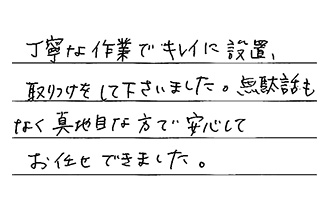 丁寧な作業でキレイに設置、
取りつけをして下さいました。無駄話も
なく真地目な方で安心して
お任せできました。